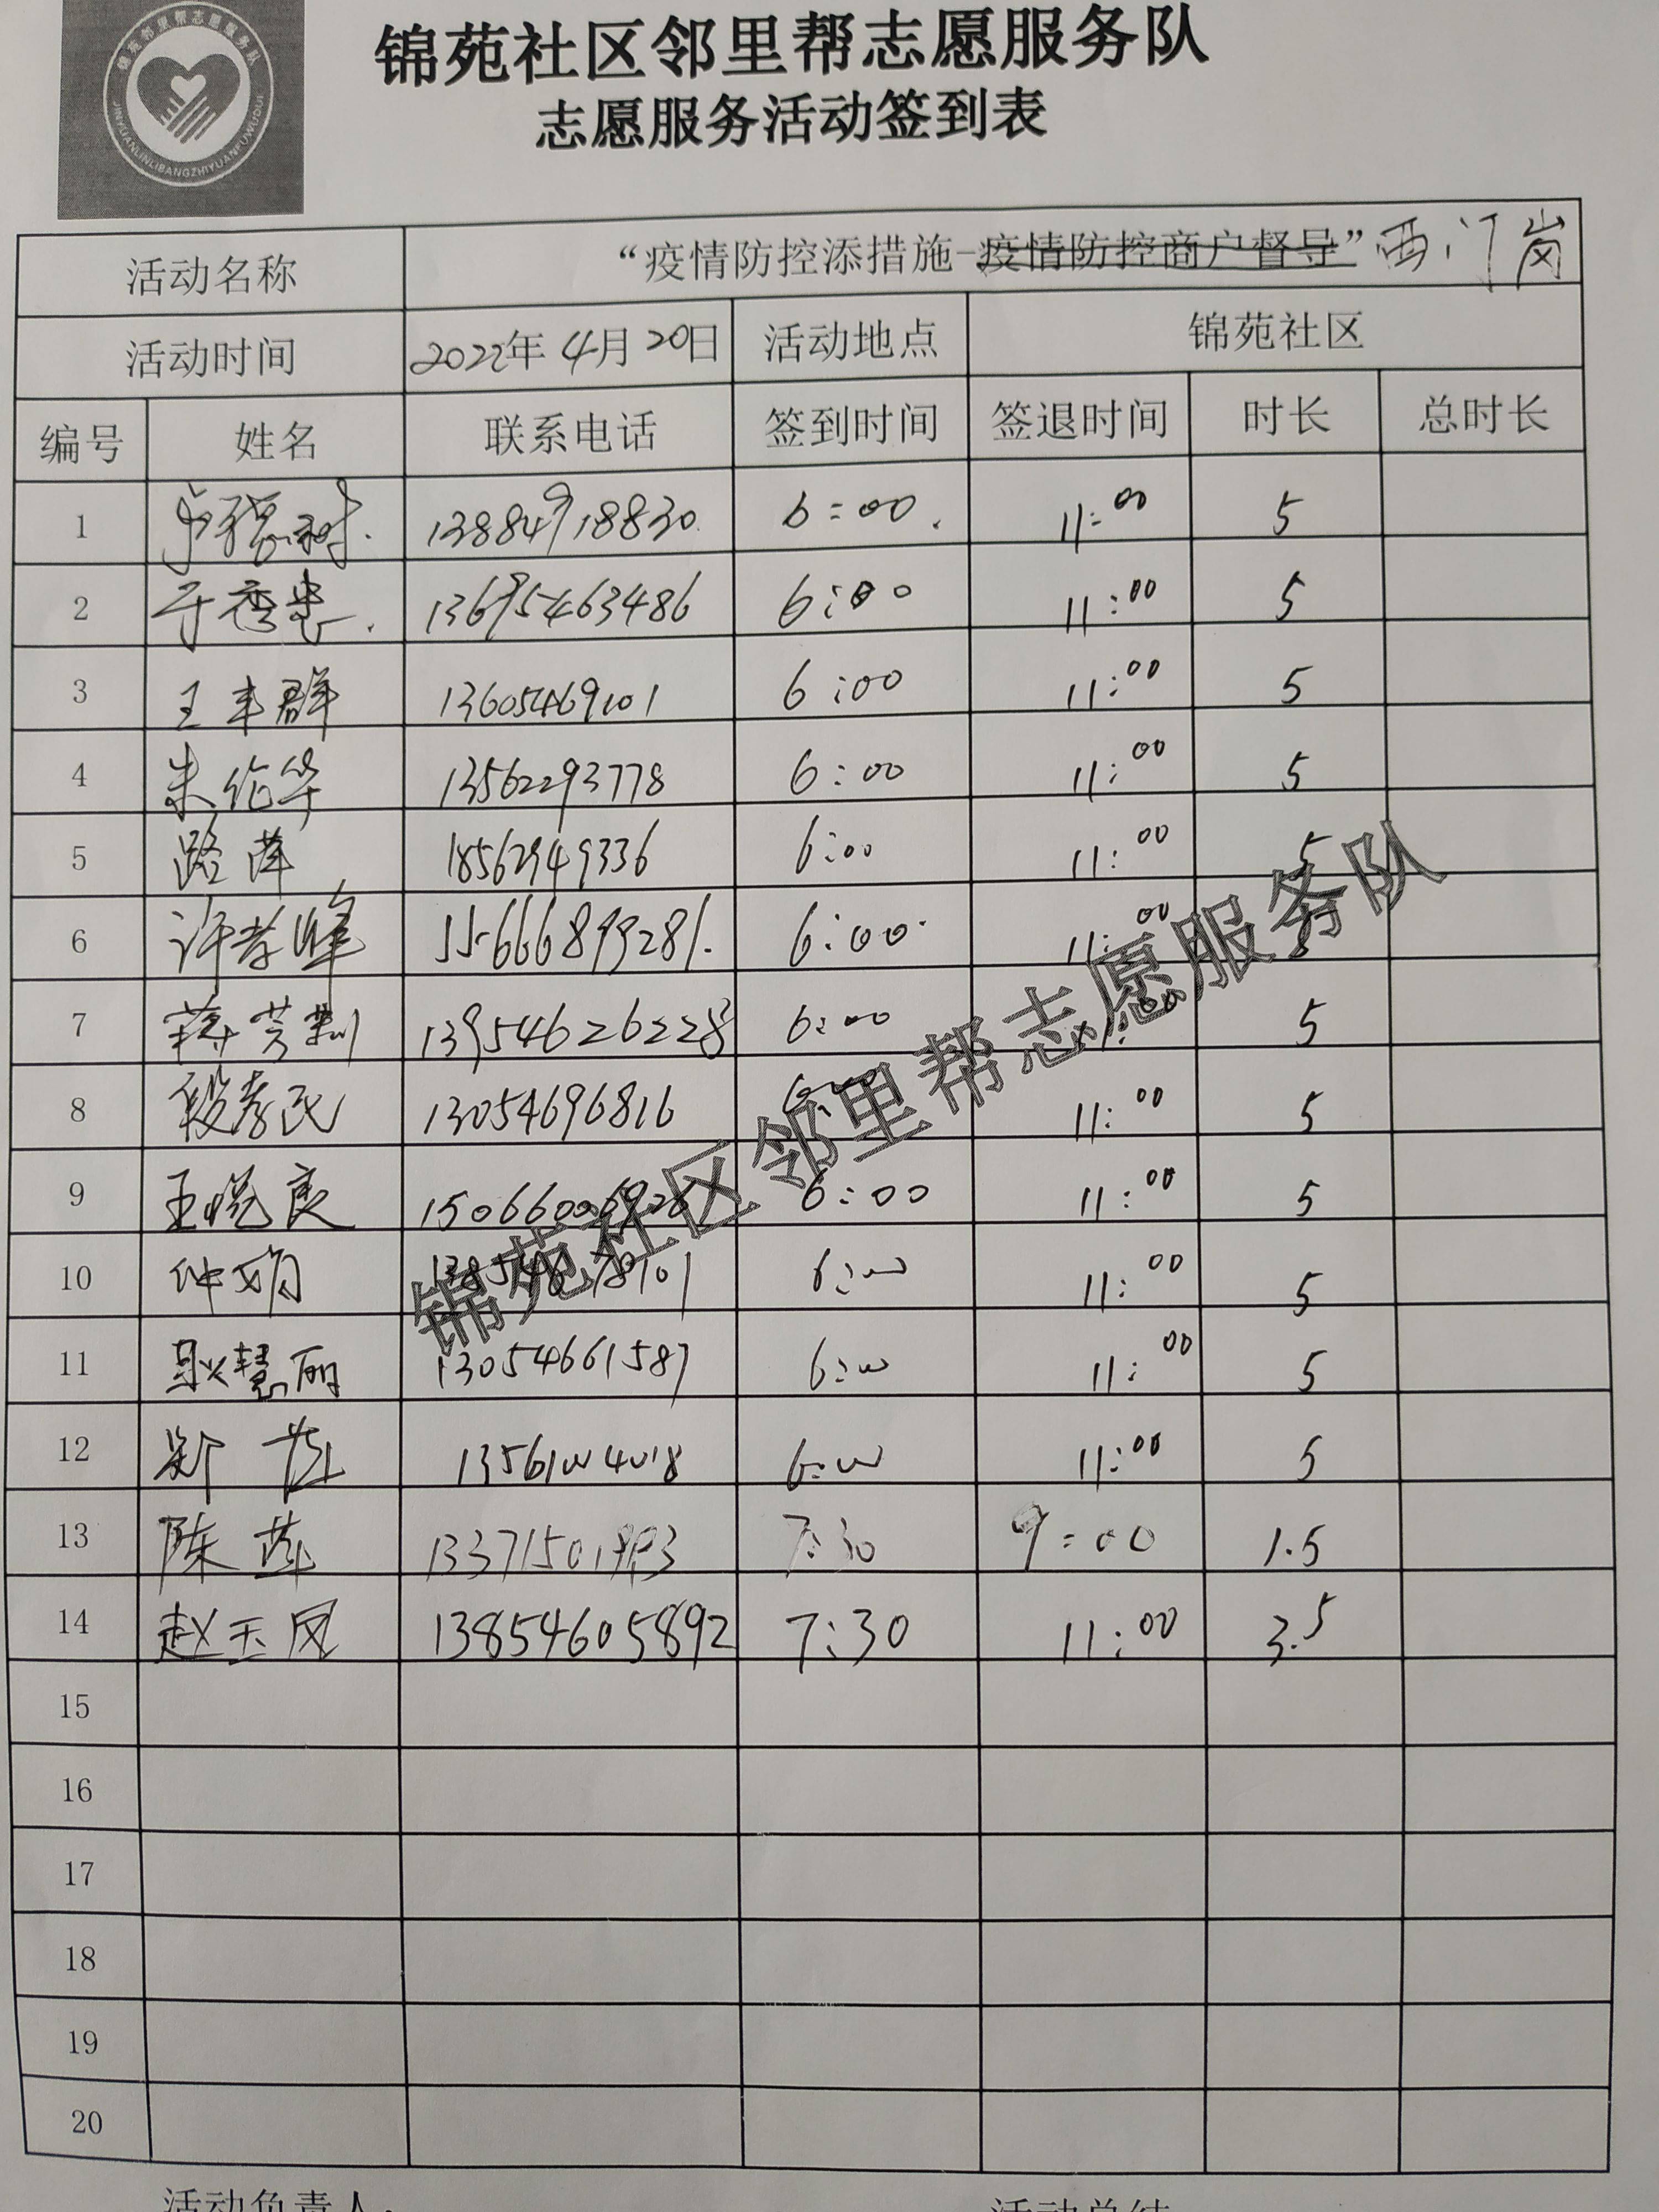 锦苑邻里帮志愿服务队
JINYUANLINLIBANGZHIYUANFUWUDUI
锦苑社区邻里帮志愿服务队
志愿服务活动签到表
活动名称 “疫情防控添措施-疫情防控商户督导” 西门岗
活动时间 2022年 4月 20日 活动地点 锦苑社区
编号 姓名 联系电话 签到时间 签退时间 时长 总时长
1 13884918830 6:00 11:00 5
2 于秀忠 13695463486 6:00 11:00 5
3 王丰群 13605469101 6:00 11:00 5
4 朱伦华 13562293778 6:00 11:00 5
5 路萍 18562949336 6:00 11:00 5
6 许孝峰 15666899281 6:00 11:00 5
7 蒋芳制 13954626228 6:00 11:00 5
8 段孝民 13054696816 6:00 11:00 5
9 王悦良 6:00 11:00 5
10 仲娟 6:00 11:00 5
11 耿慧丽 13054661587 6:00 11:00 5
12 13561004018 6:00 11:00 5
13 陈 7:30 9:00 1.5
14 赵玉凤 13854605892 7:30 11:00 3.5
15
16
17
18
19
20
锦苑社区邻里帮志愿服务队
活动负责人:
活动总结